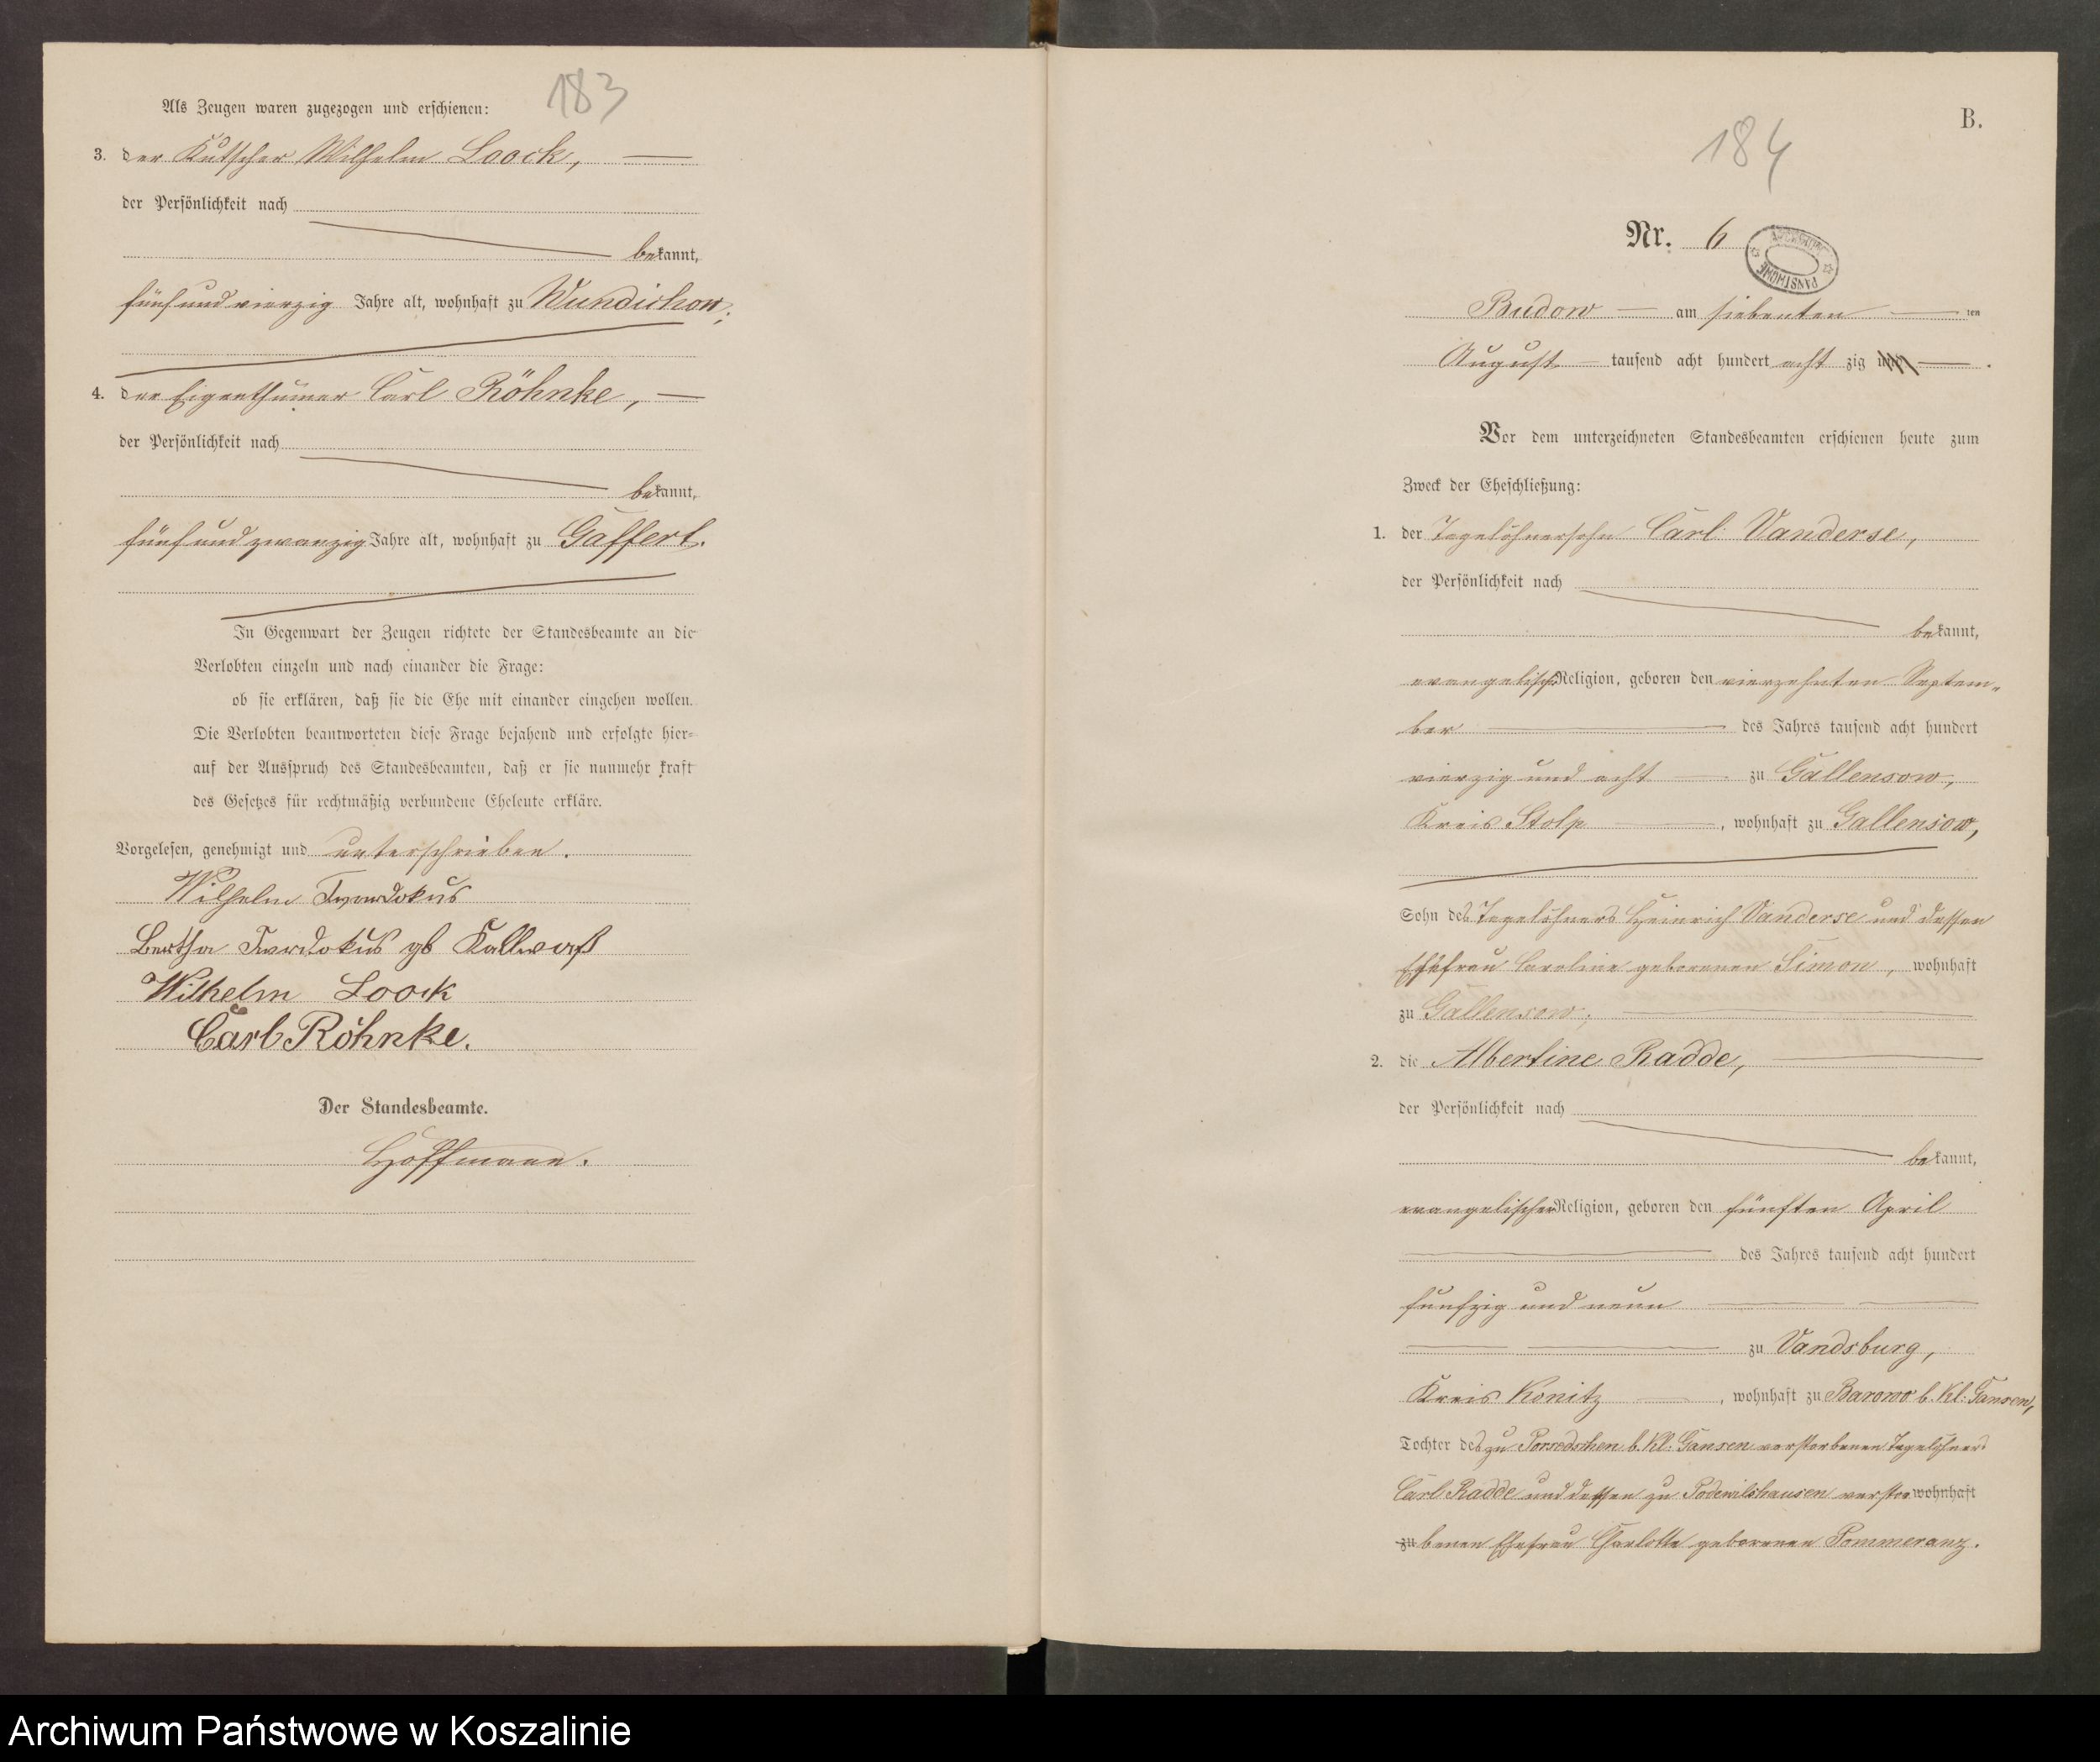 183
Als Zeugen waren zugezogen und erschienen:
3. der Kutscher Wilhelm Loock,
der Persönlichkeit nach
bekannt,
fünf und vierzig Jahre alt, wohnhaft zu Wundichow;
4. der Eigenthümer Carl Röhnke,
der Persönlichkeit nach
bekannt,
fünf und zwanzig Jahre alt, wohnhaft zu Gaffert.
In Gegenwart der Zeugen richtete der Standesbeamte an die
Verlobten einzeln und nach einander die Frage:
ob sie erklären, daß sie die Ehe mit einander eingehen wollen.
Die Verlobten beantworteten diese Frage bejahend und erfolgte hier-
auf der Ausspruch des Standesbeamten, daß er sie nunmehr kraft
des Gesetzes für rechtmäßig verbundene Eheleute erkläre.
Vorgelesen, genehmigt und unterschrieben.
Wilhelm Twardokus
Bertha Twardokus gb Kallwaß
Wilhelm Loock
Carl Röhnke.
Der Standesbeamte.
Hoffmann.
B.
184
Nr. 6
Budow am siebenten ten
August tausend acht hundert acht zig und
Vor dem unterzeichneten Standesbeamten erschienen heute zum
Zweck der Eheschließung:
1. der Tagelöhnersohn Carl Vanderse,
der Persönlichkeit nach
bekannt,
evangelischer Religion, geboren den vierzehnten Septem-
ber des Jahres tausend acht hundert
vierzig und acht zu Gallensow,
Kreis Stolp, wohnhaft zu Gallensow,
Sohn des Tagelöhners Heinrich Vanderse und dessen
Ehefrau Caroline geborenen Simon, wohnhaft
zu Gallensow;
2. die Albertine Radde,
der Persönlichkeit nach
bekannt,
evangelischer Religion, geboren den fünften April
des Jahres tausend acht hundert
funfzig und neun
zu Vandsburg,
Kreis Konitz, wohnhaft zu Barowo b. Kl: Gansen,
Tochter des zu b. Kl: Gansen verstorbenen Tagelöhners
Carl Radde und dessen zu Podewilshausen verstor wohnhaft
zu benen Ehefrau Charlotte geborenen Pommeranz.
PAŃSTWOWE
Archiwum Państwowe w Koszalinie